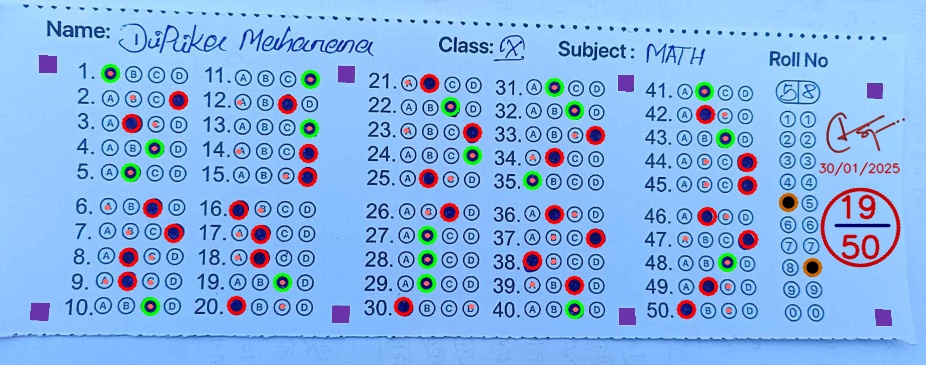 Name: DiPika Meharana Class: X Subject: MATH Roll No
58
1. B C D
2. A B C
3. A C D
4. A B D
5. A C D
6. A B D
7. A B C
8. A C D
9. A C D
10. A B D
11. A B C
12. A B D
13. A B C
14. A B C
15. A B C
16. B C D
17. A C D
18. A C D
19. A B D
20. B C D
21. A C D
22. A B D
23. A B C
24. A B C
25. A C D
26. A B D
27. A C D
28. A C D
29. A C D
30. B C D
31. A C D
32. A B D
33. A B C
34. A C D
35. B C D
36. A C D
37. A B C
38. B C D
39. A B D
40. A B D
41. A C D
42. A C D
43. A B D
44. A B C
45. A B C
46. A C D
47. A B C
48. A B D
49. A C D
50. B C D
1 1
2 2
3 3
4 4
5
6 6
7 7
8
9 9
0 0
30/01/2025
19
50